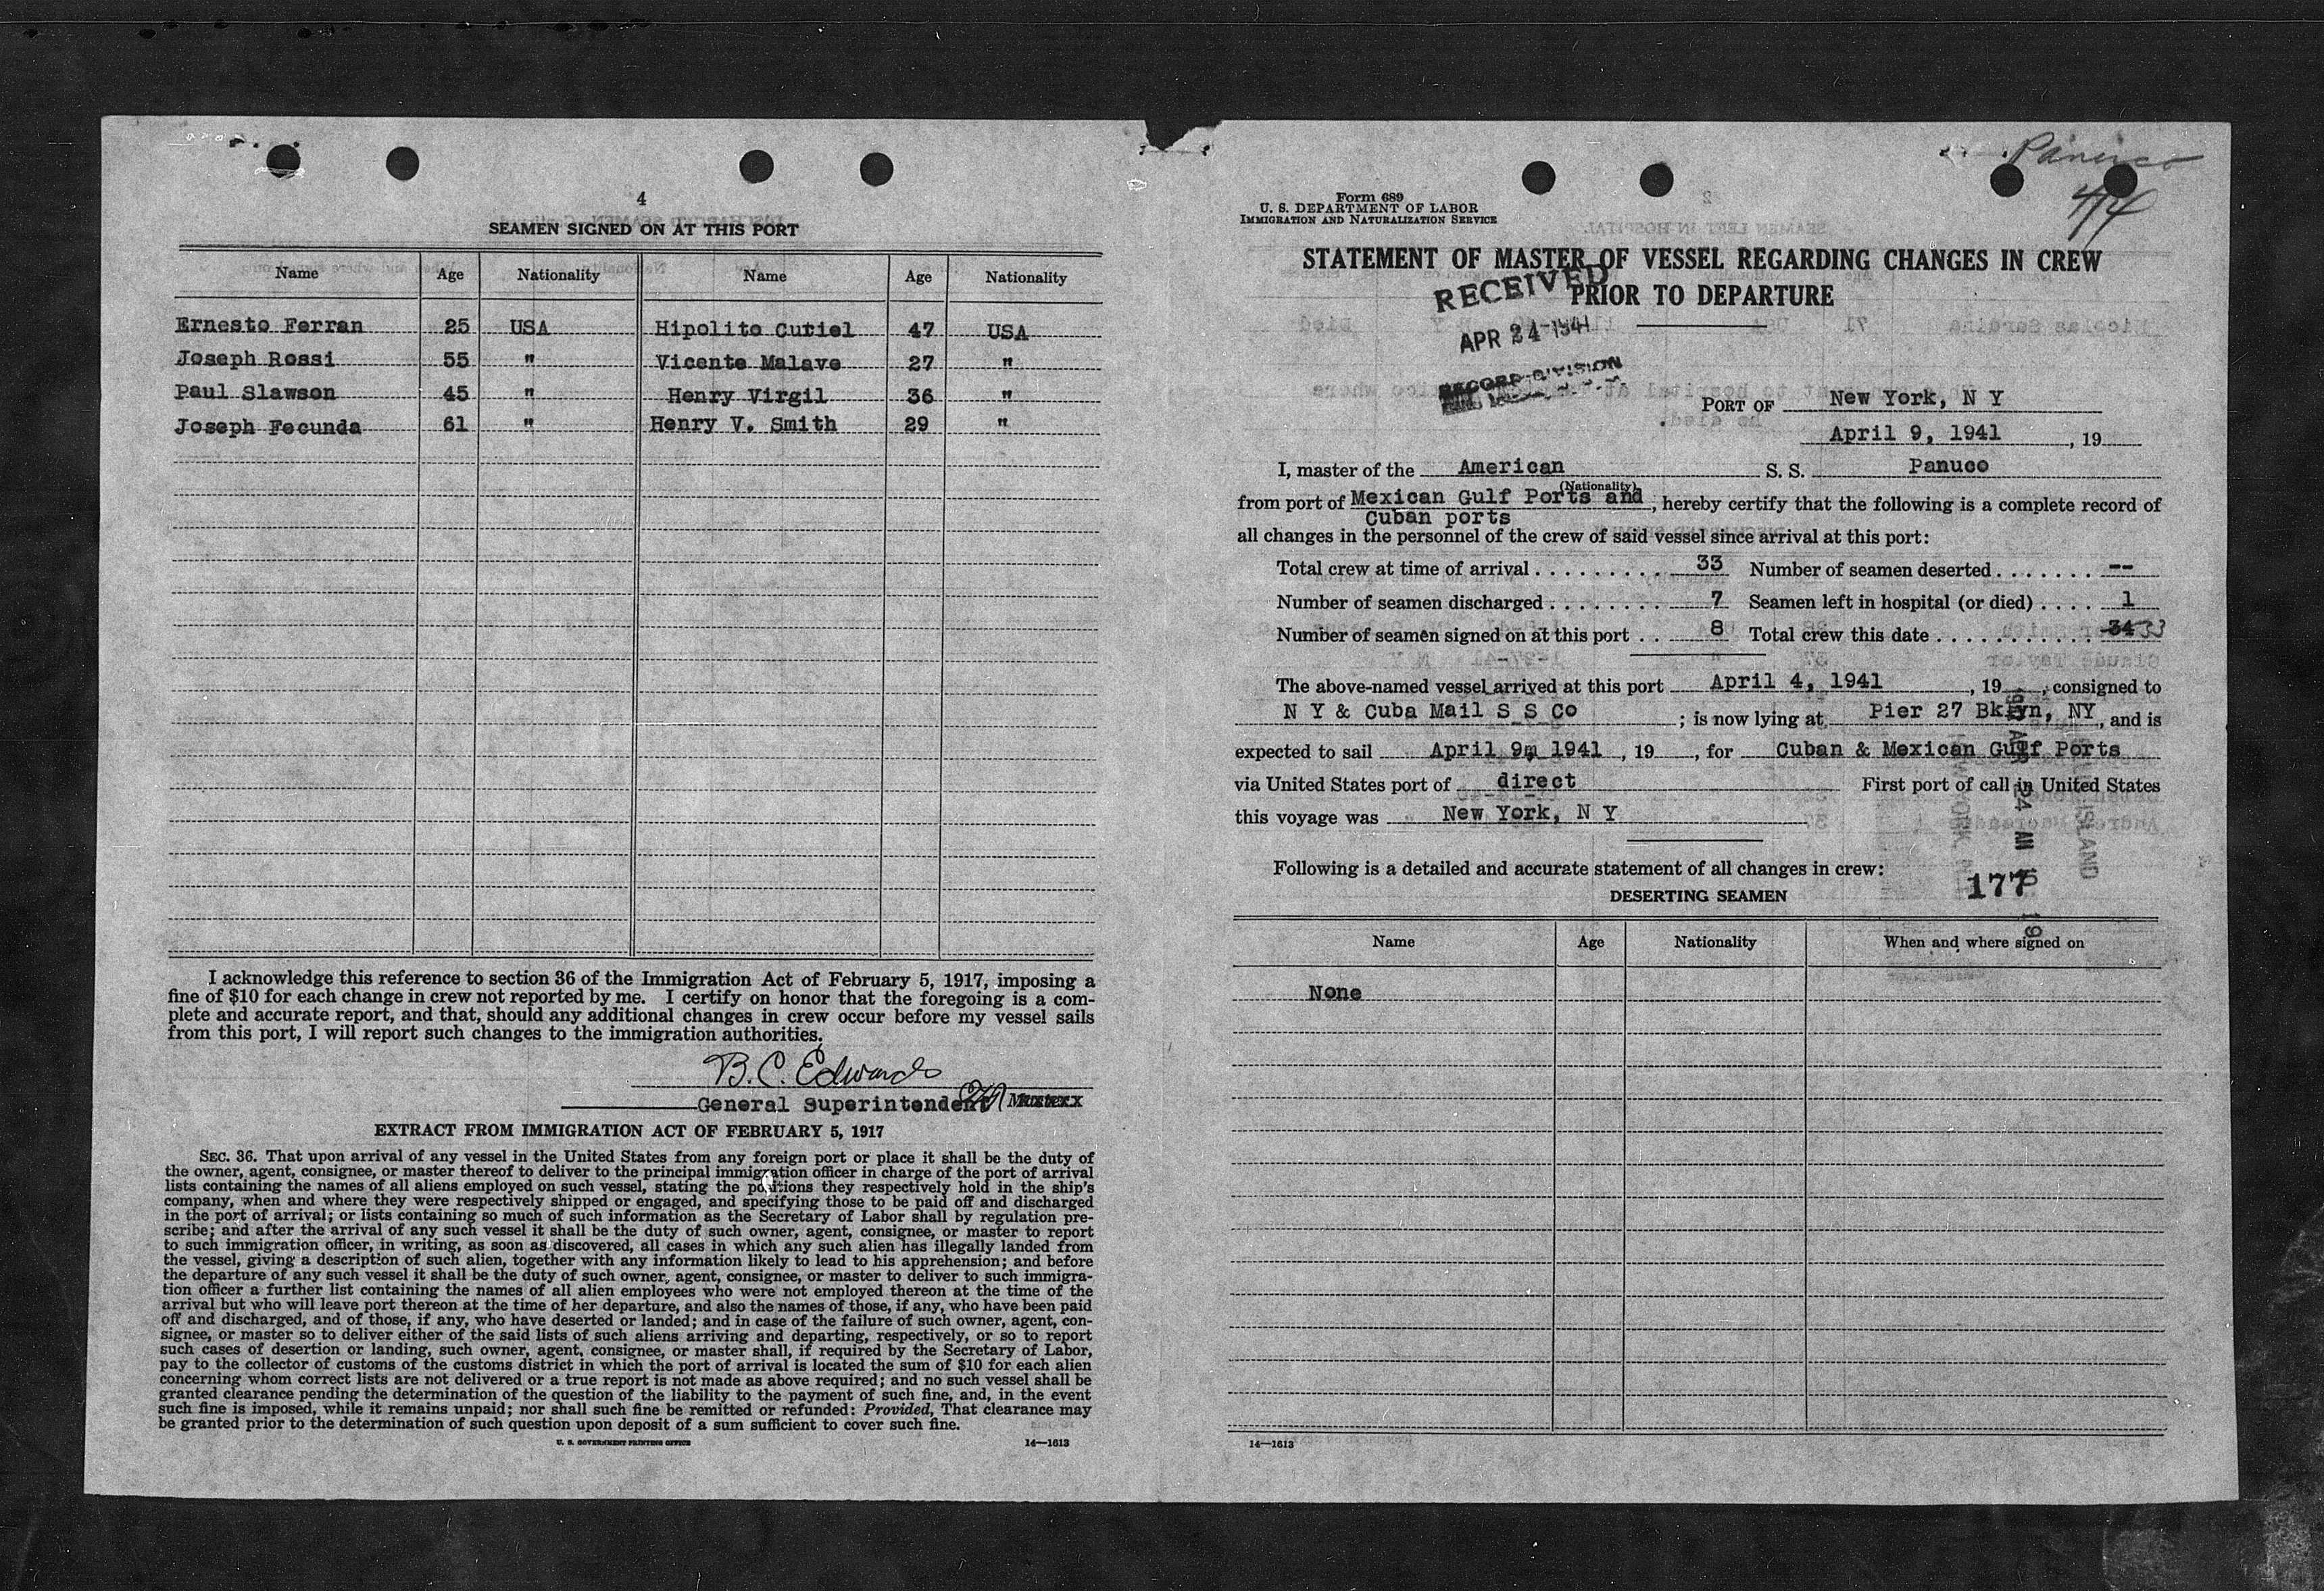 4
SEAMEN SIGNED ON AT THIS PORT
Name Age Nationality Name Age Nationality
Ernesto Ferran 25 USA Hipolito Curiel 47 USA
Joseph Rossi 55 " Vicente Malave 27 "
Paul Slawson 45 " Henry Virgil 36 "
Joseph Fecunda 61 " Henry V. Smith 29 "
I acknowledge this reference to section 36 of the Immigration Act of February 5, 1917, imposing a
fine of $10 for each change in crew not reported by me. I certify on honor that the foregoing is a com-
plete and accurate report, and that, should any additional changes in crew occur before my vessel sails
from this port, I will report such changes to the immigration authorities.
B. C. Edwards
General Superintendent
EXTRACT FROM IMMIGRATION ACT OF FEBRUARY 5, 1917
SEC. 36. That upon arrival of any vessel in the United States from any foreign port or place it shall be the duty of
the owner, agent, consignee, or master thereof to deliver to the principal immigration officer in charge of the port of arrival
lists containing the names of all aliens employed on such vessel, stating the positions they respectively hold in the ship's
company, when and where they were respectively shipped or engaged, and specifying those to be paid off and discharged
in the port of arrival; or lists containing so much of such information as the Secretary of Labor shall by regulation pre-
scribe; and after the arrival of any such vessel it shall be the duty of such owner, agent, consignee, or master to report
to such immigration officer, in writing, as soon as discovered, all cases in which any such alien has illegally landed from
the vessel, giving a description of such alien, together with any information likely to lead to his apprehension; and before
the departure of any such vessel it shall be the duty of such owner, agent, consignee, or master to deliver to such immigra-
tion officer a further list containing the names of all alien employees who were not employed thereon at the time of the
arrival but who will leave port thereon at the time of her departure, and also the names of those, if any, who have been paid
off and discharged, and of those, if any, who have deserted or landed; and in case of the failure of such owner, agent, con-
signee, or master so to deliver either of the said lists of such aliens arriving and departing, respectively, or so to report
such cases of desertion or landing, such owner, agent, consignee, or master shall, if required by the Secretary of Labor,
pay to the collector of customs of the customs district in which the port of arrival is located the sum of $10 for each alien
concerning whom correct lists are not delivered or a true report is not made as above required; and no such vessel shall be
granted clearance pending the determination of the question of the liability to the payment of such fine, and, in the event
such fine is imposed, while it remains unpaid; nor shall such fine be remitted or refunded: Provided, That clearance may
be granted prior to the determination of such question upon deposit of a sum sufficient to cover such fine.
U. S. GOVERNMENT PRINTING OFFICE 14—1613
Panuco
4/4
Form 689
U. S. DEPARTMENT OF LABOR
IMMIGRATION AND NATURALIZATION SERVICE
STATEMENT OF MASTER OF VESSEL REGARDING CHANGES IN CREW
PRIOR TO DEPARTURE
RECEIVED
APR 24 1941
RECORD DIVISION
PORT OF New York, N Y
April 9, 1941, 19
I, master of the American S. S. Panuco
(Nationality)
from port of Mexican Gulf Ports and, hereby certify that the following is a complete record of
Cuban ports
all changes in the personnel of the crew of said vessel since arrival at this port:
Total crew at time of arrival . . . . . . . . . . 33 Number of seamen deserted . . . . . . . --
Number of seamen discharged . . . . . . . . 7 Seamen left in hospital (or died) . . . . 1
Number of seamen signed on at this port . . 8 Total crew this date . . . . . . . . . . . 34 33
The above-named vessel arrived at this port April 4, 1941, 19, consigned to
N Y & Cuba Mail S S Co; is now lying at Pier 27 Bklyn, NY, and is
expected to sail April 9, 1941, 19, for Cuban & Mexican Gulf Ports
via United States port of direct First port of call in United States
this voyage was New York, N Y
Following is a detailed and accurate statement of all changes in crew:
177
DESERTING SEAMEN
Name Age Nationality When and where signed on
None
14—1613